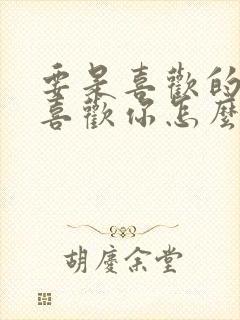 要是喜歡的
喜歡你怎麼
胡慶余堂